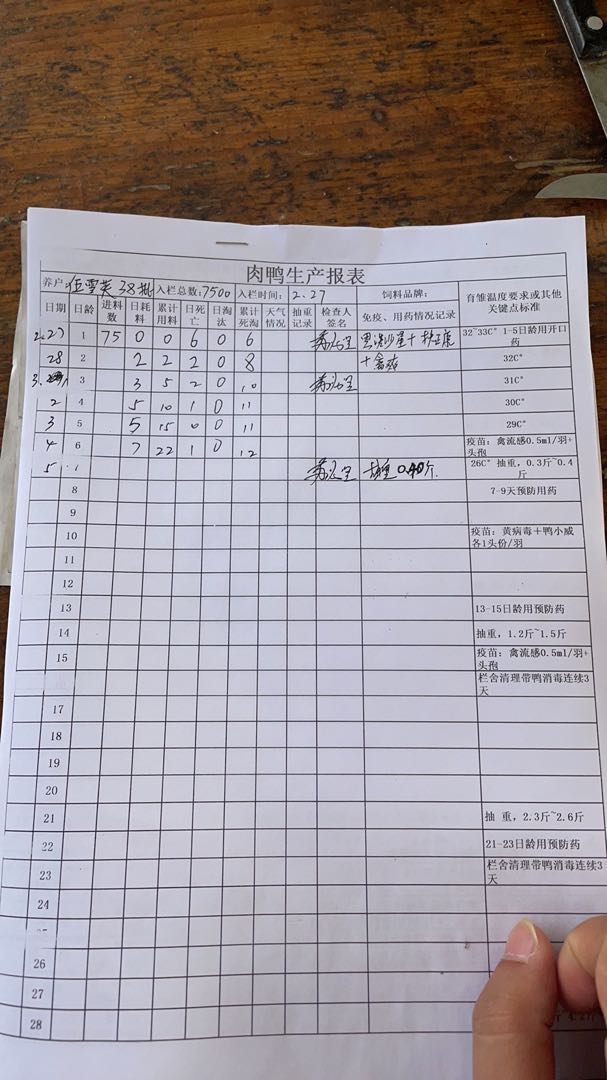 肉鸭生产报表
养户: 38批 入栏总数:7500 入栏时间: 2.27 饲料品牌: 育雏温度要求或其他关键点标准
日期 日龄 进料数 日耗料 累计用料 日死亡 日淘汰 累计死淘 天气情况 抽重记录 检查人签名 免疫、用药情况记录
2.27 1 75 0 0 6 0 6 32~33C° 1-5日龄用开口药
28 2 2 2 2 0 8 32C°
3. 3 3 5 2 0 10 31C°
2 4 5 10 1 0 11 30C°
3 5 5 15 0 0 11 29C°
4 6 7 22 1 0 12 疫苗: 禽流感0.5ml/羽+头孢
5 26C° 抽重, 0.3斤~0.4斤
8 7-9天预防用药
9
10 疫苗: 黄病毒+鸭小威各1头份/羽
11
12
13 13-15日龄用预防药
14 抽重, 1.2斤~1.5斤
15 疫苗: 禽流感0.5ml/羽+头孢
栏舍清理带鸭消毒连续3天
17
18
19
20
21 抽 重, 2.3斤~2.6斤
22 21-23日龄用预防药
23 栏舍清理带鸭消毒连续3天
24
26
27
28